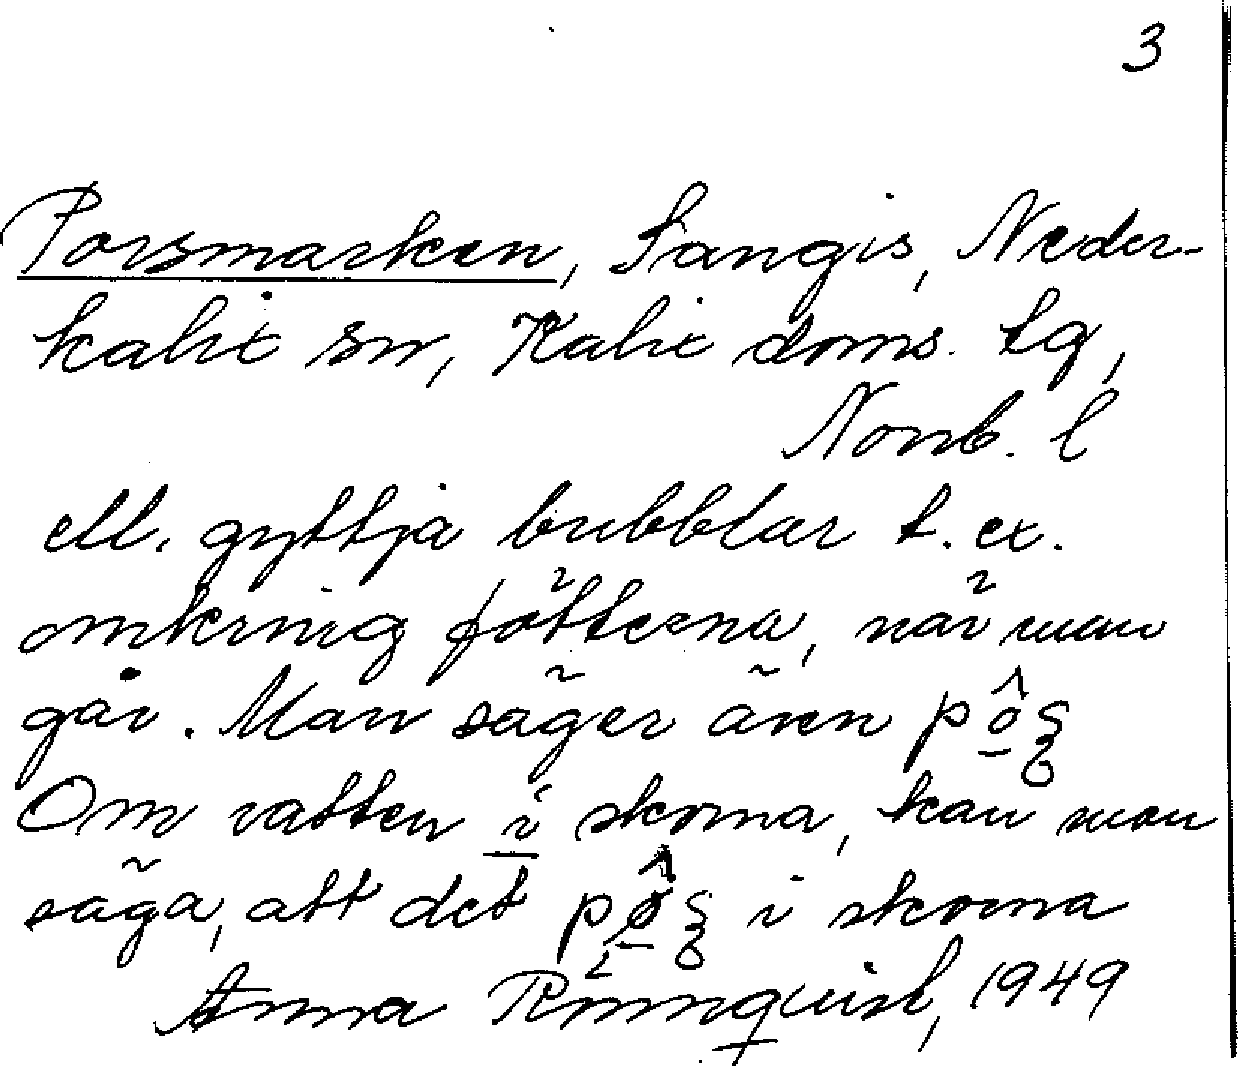 3
Porsmarken, Sangis, Neder-
kalix sn, Kalix doms. tg,
Norrb. l
ell. gyttja bubblar t. ex.
omkring fötterna, när man
går. Man säger även
Om vatten i skorna, kan man
säga, att det i skorna
Anna Rönnquist, 1949